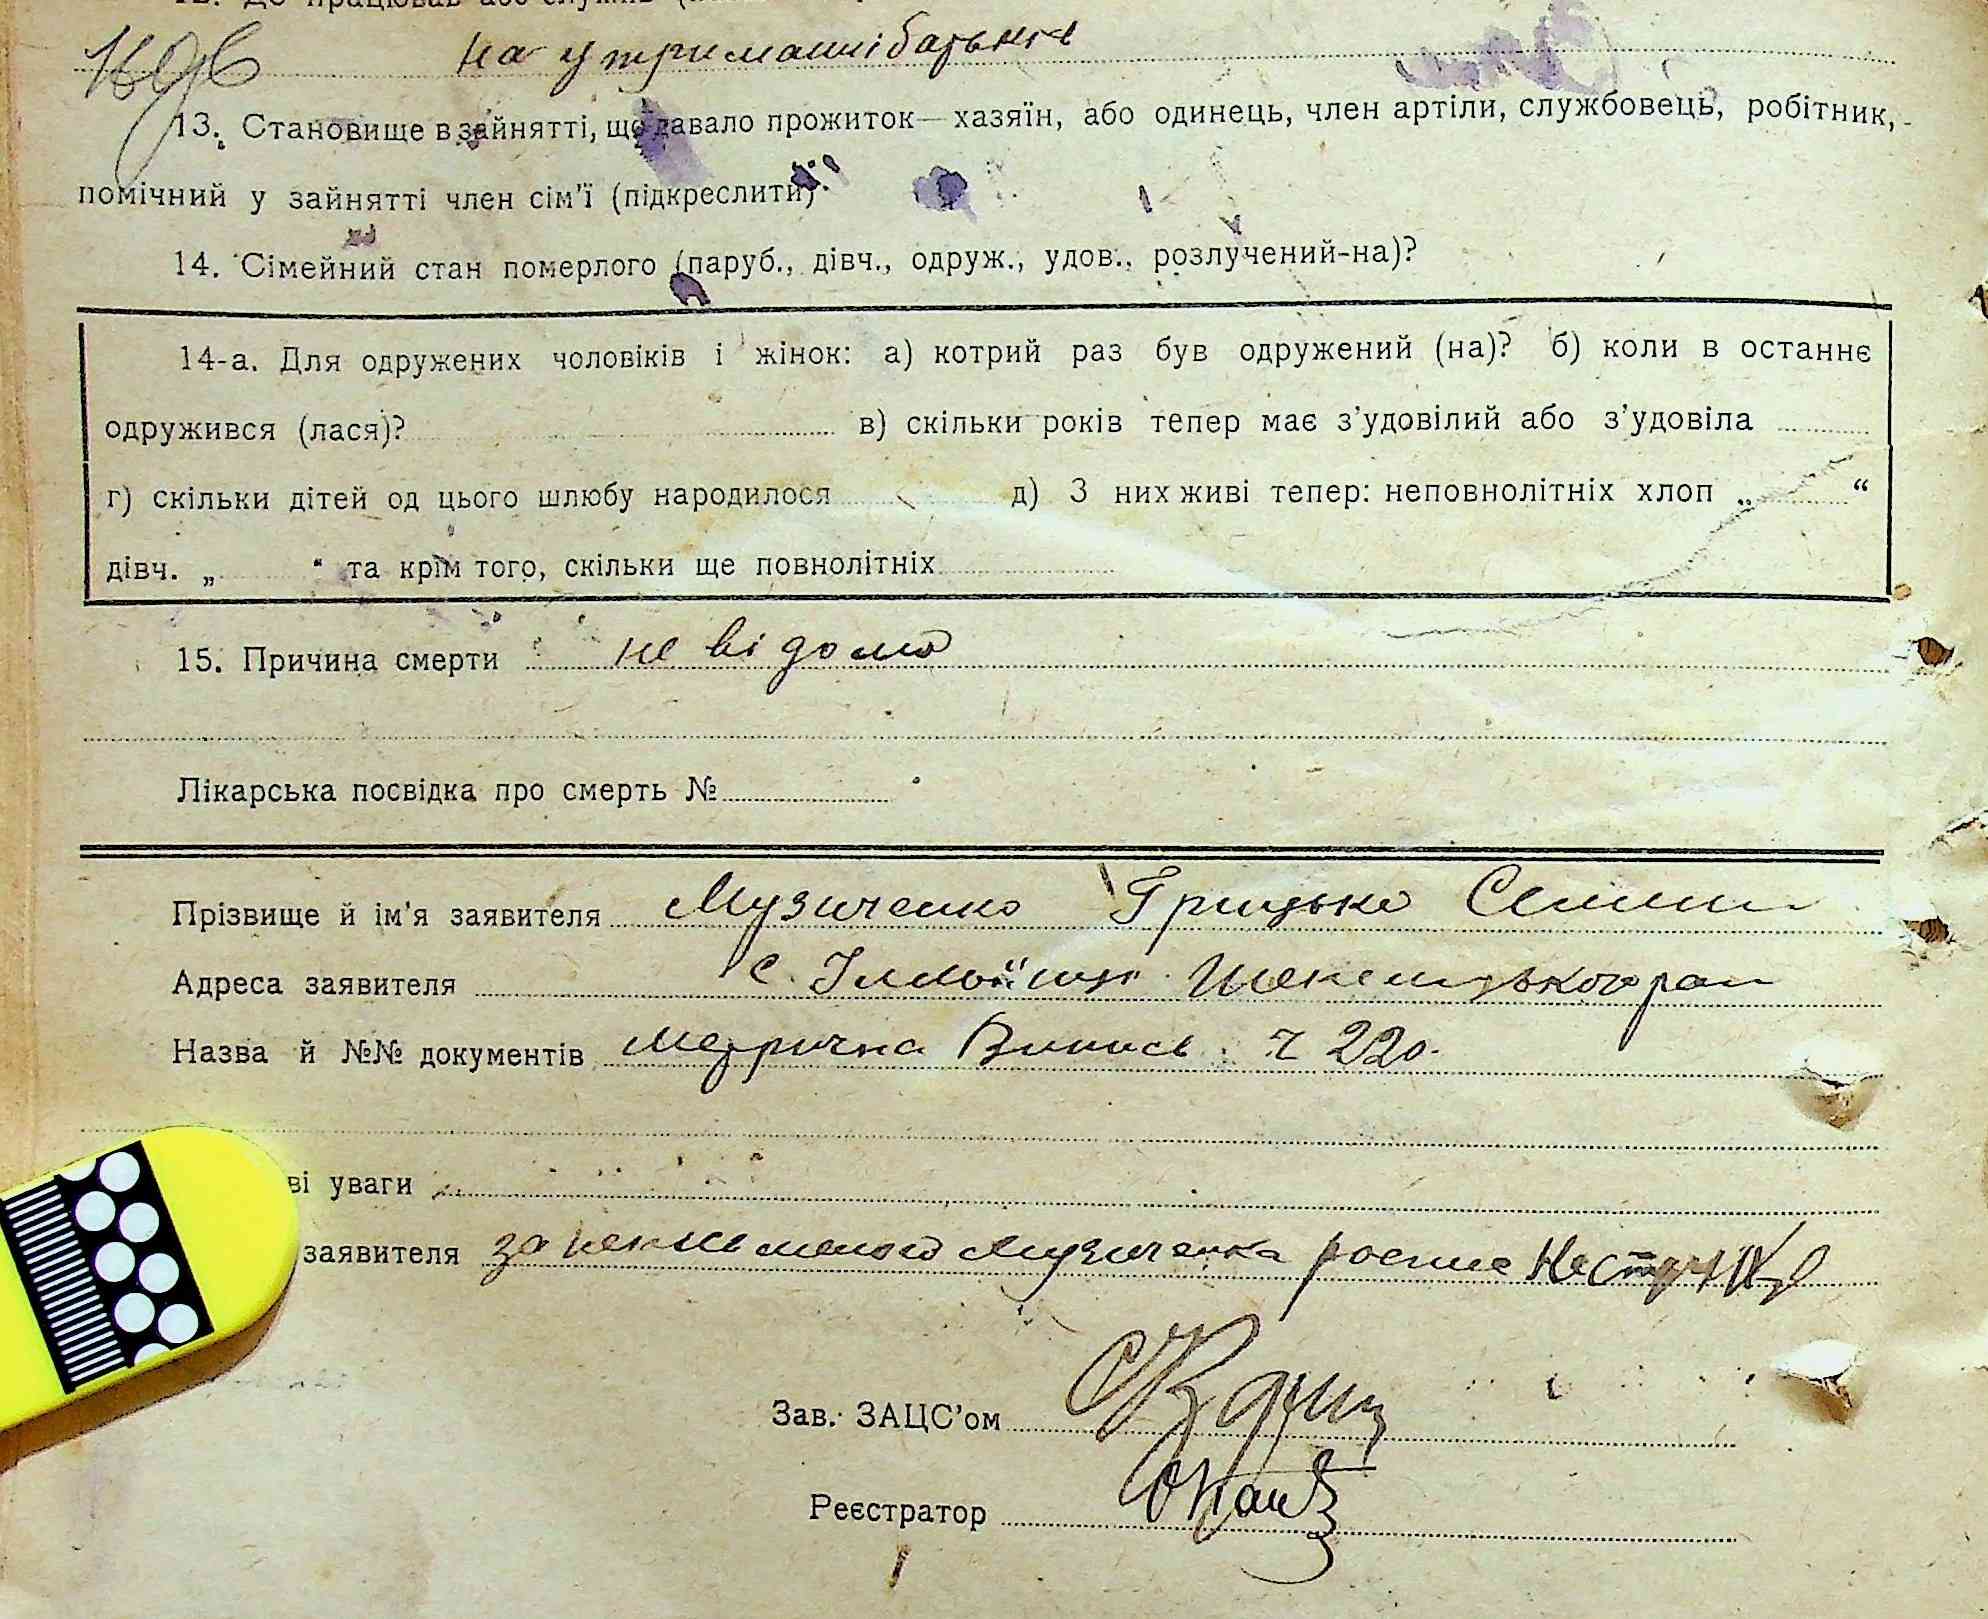 на утриманні батьків
13. Становище в зайнятті, що давало прожиток — хазяїн, або одинець, член артіли, службовець, робітник,
помічний у зайнятті член сім'ї (підкреслити).
14. Сімейний стан померлого (паруб., дівч., одруж., удов., розлучений-на)?
14-а. Для одружених чоловіків і жінок: а) котрий раз був одружений (на)? б) коли в останнє
одружився (лася)? в) скільки років тепер має з'удовілий або з'удовіла
г) скільки дітей од цього шлюбу народилося д) З них живі тепер: неповнолітніх хлоп „ “
дівч. „ “ та крім того, скільки ще повнолітніх
15. Причина смерти не відома
Лікарська посвідка про смерть №
Прізвище й ім'я заявителя Музиченко Грицько
Адреса заявителя с.
Назва й №№ документів метрична Випись ч 220.
ві уваги
заявителя за Музиченка
Зав. ЗАЦС'ом
Реєстратор